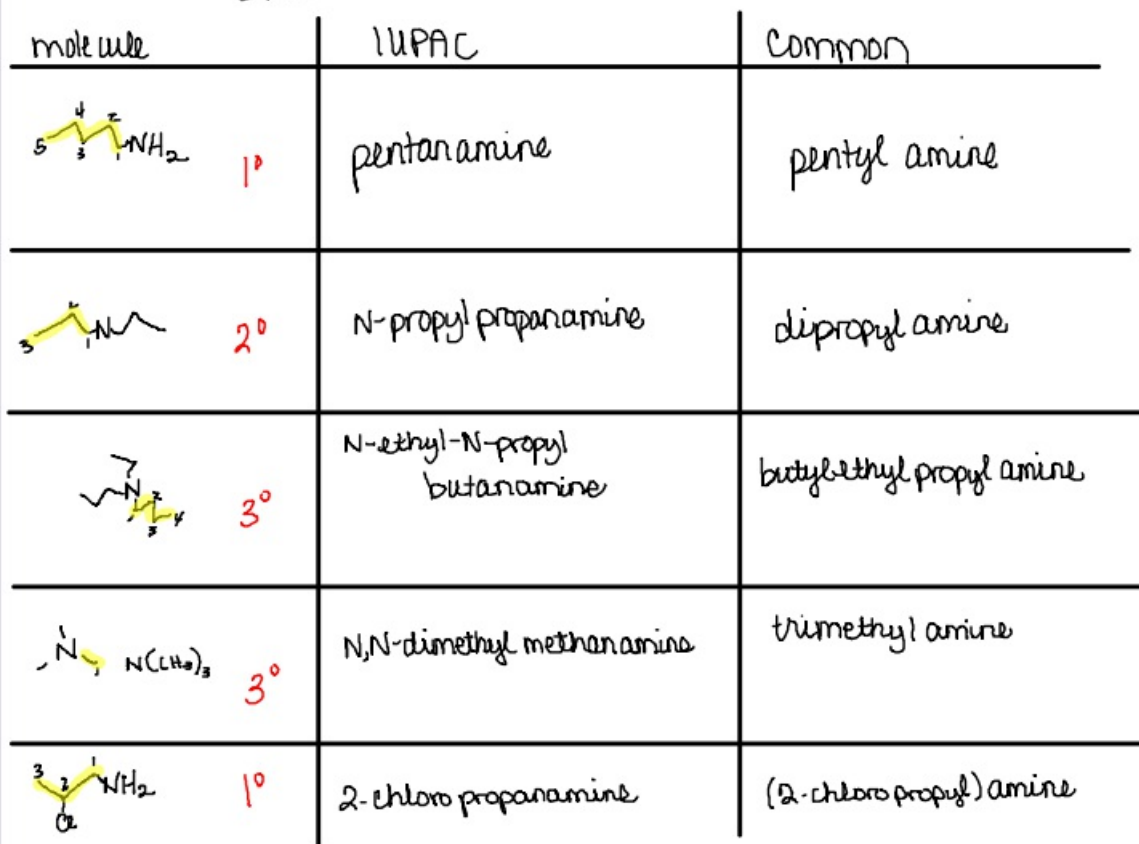 molecule IUPAC Common
5 4 3 2 1 NH2 1° pentanamine pentyl amine
3 2 1 N 2° N-propyl propanamine dipropyl amine
N-ethyl-N-propyl
butanamine
N 1 2 3 4 3° butylethyl propyl amine
N N(CH3)3 3° N,N-dimethyl methanamine trimethyl amine
3 2 1 NH2 1° 2-chloro propanamine (2-chloro propyl) amine
Cl